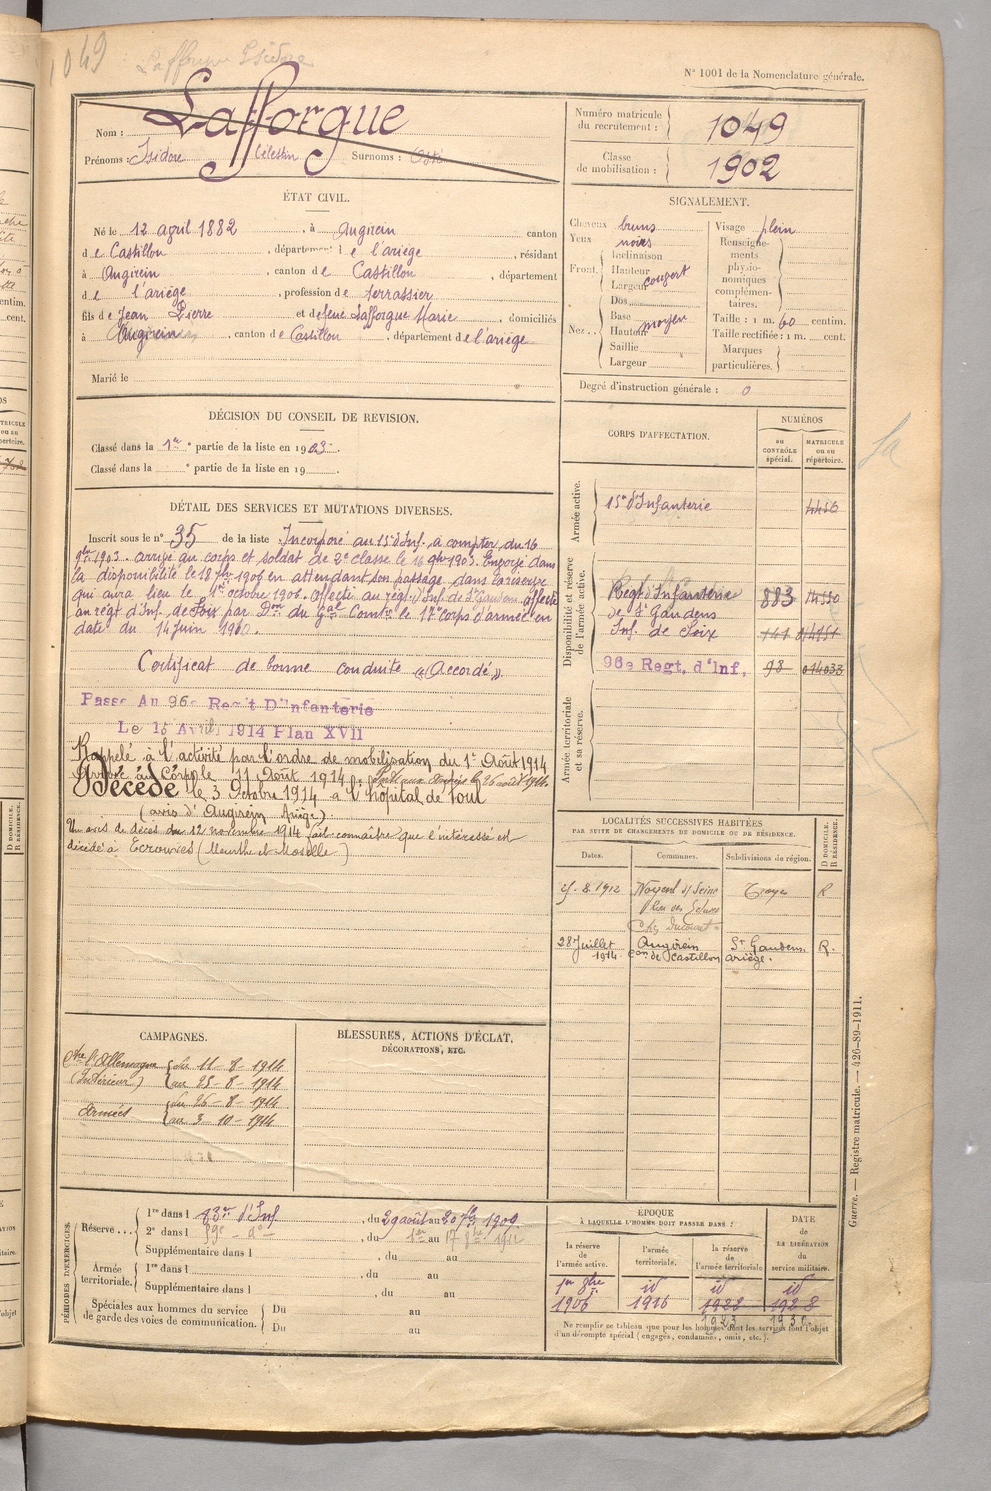 1049
Lafforgue Isidore
N° 1001 de la Nomenclature générale.
Nom : Lafforgue
Prénoms : Isidore Célestin Surnoms :
Numéro matricule du recrutement : 1049
Classe de mobilisation : 1902
ÉTAT CIVIL.
Né le 12 avril 1882, à Augirein canton
de Castillon, département de l'ariège, résidant
à Augirein, canton de Castillon, département
de l'ariège, profession de terrassier
fils de Jean Pierre et de feue Lafforgue Marie, domiciliés
à Augirein, canton de Castillon, département de l'ariège
Marié le
SIGNALEMENT.
Cheveux bruns
Yeux noirs
Front. Inclinaison
Hauteur
Largeur couvert
Nez. Dos
Base
Hauteur moyen
Saillie
Largeur
Visage plein
Renseignements physionomiques complémentaires.
Taille : 1 m. 60 centim.
Taille rectifiée : 1 m. cent.
Marques particulières.
Degré d'instruction générale : 0
DÉCISION DU CONSEIL DE REVISION.
Classé dans la 1re partie de la liste en 1903.
Classé dans la e partie de la liste en 19
DÉTAIL DES SERVICES ET MUTATIONS DIVERSES.
Inscrit sous le n° 35 de la liste Incorporé au 15e d'Inf. à compter du 16
9bre 1903. arrivé au corps et soldat de 2e classe le 16 9bre 1903. Envoyé dans
la disponibilité le 18 7bre 1906 en attendant son passage dans la réserve
qui aura lieu le 1er octobre 1906. Affecté au régt d'Inf. de St Gaudens affecté
au régt d'Inf. de Foix par Don du Gal Comt le 17e corps d'armée en
date du 14 juin 1910.
Certificat de bonne conduite « Accordé »
Passe Au 96e Regit D'infanterie
Le 15 Avril 1914 Plan XVII
Rappelé à l'activité par l'ordre de mobilisation du 1er Août 1914
Arrivé au Corps le 11 Août 1914. Parti aux armées le 26 août 1914.
Décédé le 3 Octobre 1914 à l'hôpital de Toul
(avis d'Augirein Ariège)
Un avis de décès du 12 novembre 1914 fait connaître que l'intéressé est
décédé à Ecrouves (Meurthe et Moselle)
CORPS D'AFFECTATION.
NUMÉROS
au CONTRÔLE spécial.
MATRICULE ou au répertoire.
Armée active.
15e d'Infanterie 4456
Disponibilité et réserve de l'armée active.
Regt d'Infanterie 883
de St Gaudens
Inf. de Foix 141
96e Regt. d'Inf. 98 014033
Armée territoriale et sa réserve.
LOCALITÉS SUCCESSIVES HABITÉES
PAR SUITE DE CHANGEMENTS DE DOMICILE OU DE RÉSIDENCE.
Dates. Communes. Subdivisions de région. D DOMICILE. R RÉSIDENCE.
8. 1912 Nogent s/ Seine Troyes R
28 Juillet 1914 Augirein con de Castillon St Gaudens. ariège. R.
CAMPAGNES.
Ctre l'Allemagne
(Intérieur) du 11 - 8 - 1914
au 25 - 8 - 1914
Armées du 26 - 8 - 1914
au 3 - 10 - 1914
BLESSURES, ACTIONS D'ÉCLAT,
DÉCORATIONS, ETC.
PÉRIODES D'EXERCICES.
Réserve... 1re dans l 83e d'Inf. , du 29 août au 20 7bre 1909.
2e dans l , du au 17
Supplémentaire dans l , du au
Armée territoriale. 1re dans l , du au
Supplémentaire dans l , du au
Spéciales aux hommes du service de garde des voies de communication. Du au
Du au
ÉPOQUE
À LAQUELLE L'HOMME DOIT PASSER DANS :
la réserve de l'armée active.
l'armée territoriale.
la réserve de l'armée territoriale
DATE DE LA LIBÉRATION du service militaire.
1er 8bre 1906
id 1916
id 1922 1923
id 1928
Ne remplir ce tableau que pour les hommes dont les services font l'objet
d'un décompte spécial (engagés, condamnés, omis, etc.).
Guerre. — Registre matricule. — 426-89-1911.